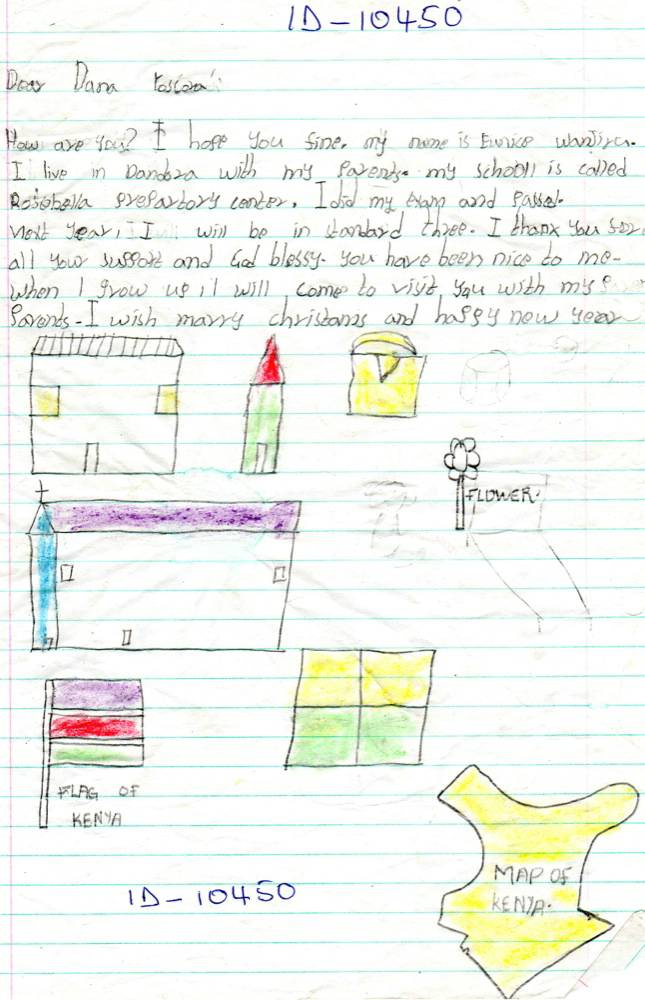 ID-10450
Dear Dana
How are you? I hope you fine. my name is Eunice Wanjiru.
I live in Dandora with my parents. my schooll is called
Rosebella prepartory center. I did my Exam and passed.
next year, I will be in standard three. I thank you for
all your support and God blessy. you have been nice to me-
when I grow up i will come to visit you with my
parents. I wish marry christams and happy new year
FLOWER.
FLAG OF
KENYA
MAP OF
KENYA.
ID-10450